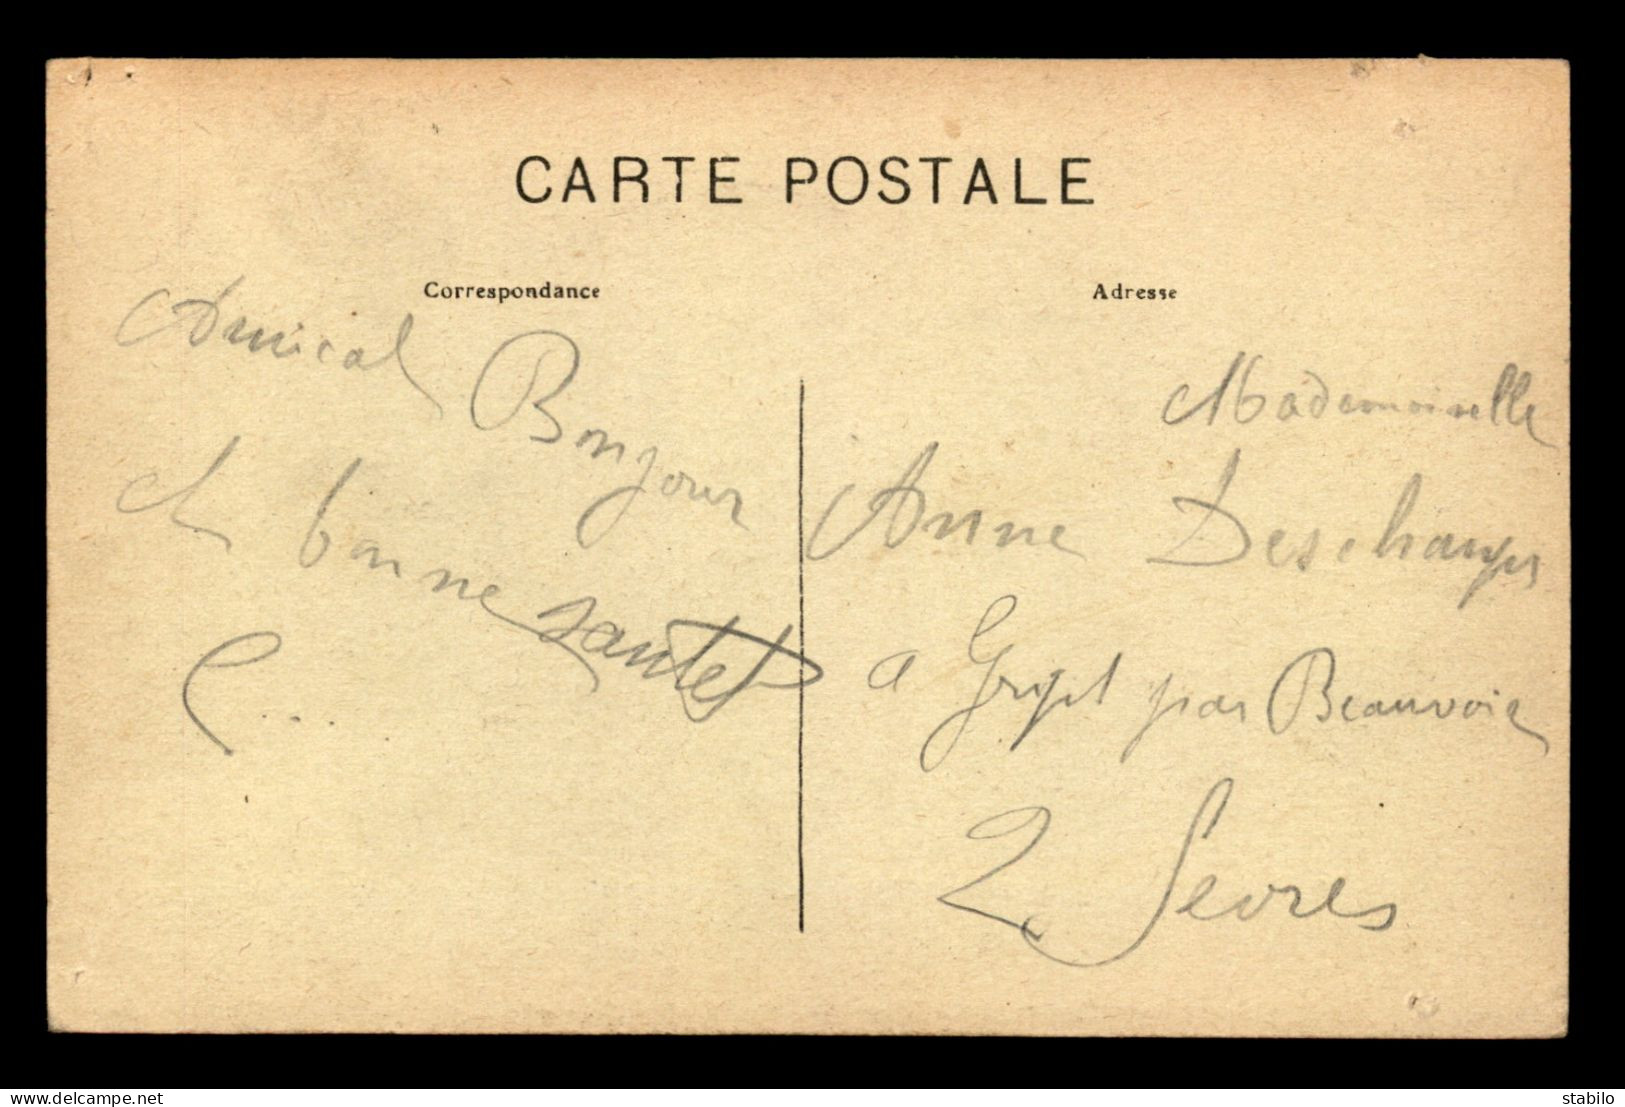 CARTE POSTALE
Correspondance
Amical Bonjour
et bonne santé
C...
Adresse
Mademoiselle
Anne Deschamps
a Gript par Beauvoir
2 Sevres
https://www.delcampe.net
stabilo